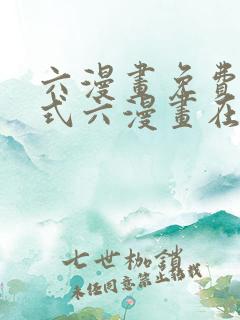 六漫畫免費
式六漫畫在
七世枷鎖
未經同意禁止轉載